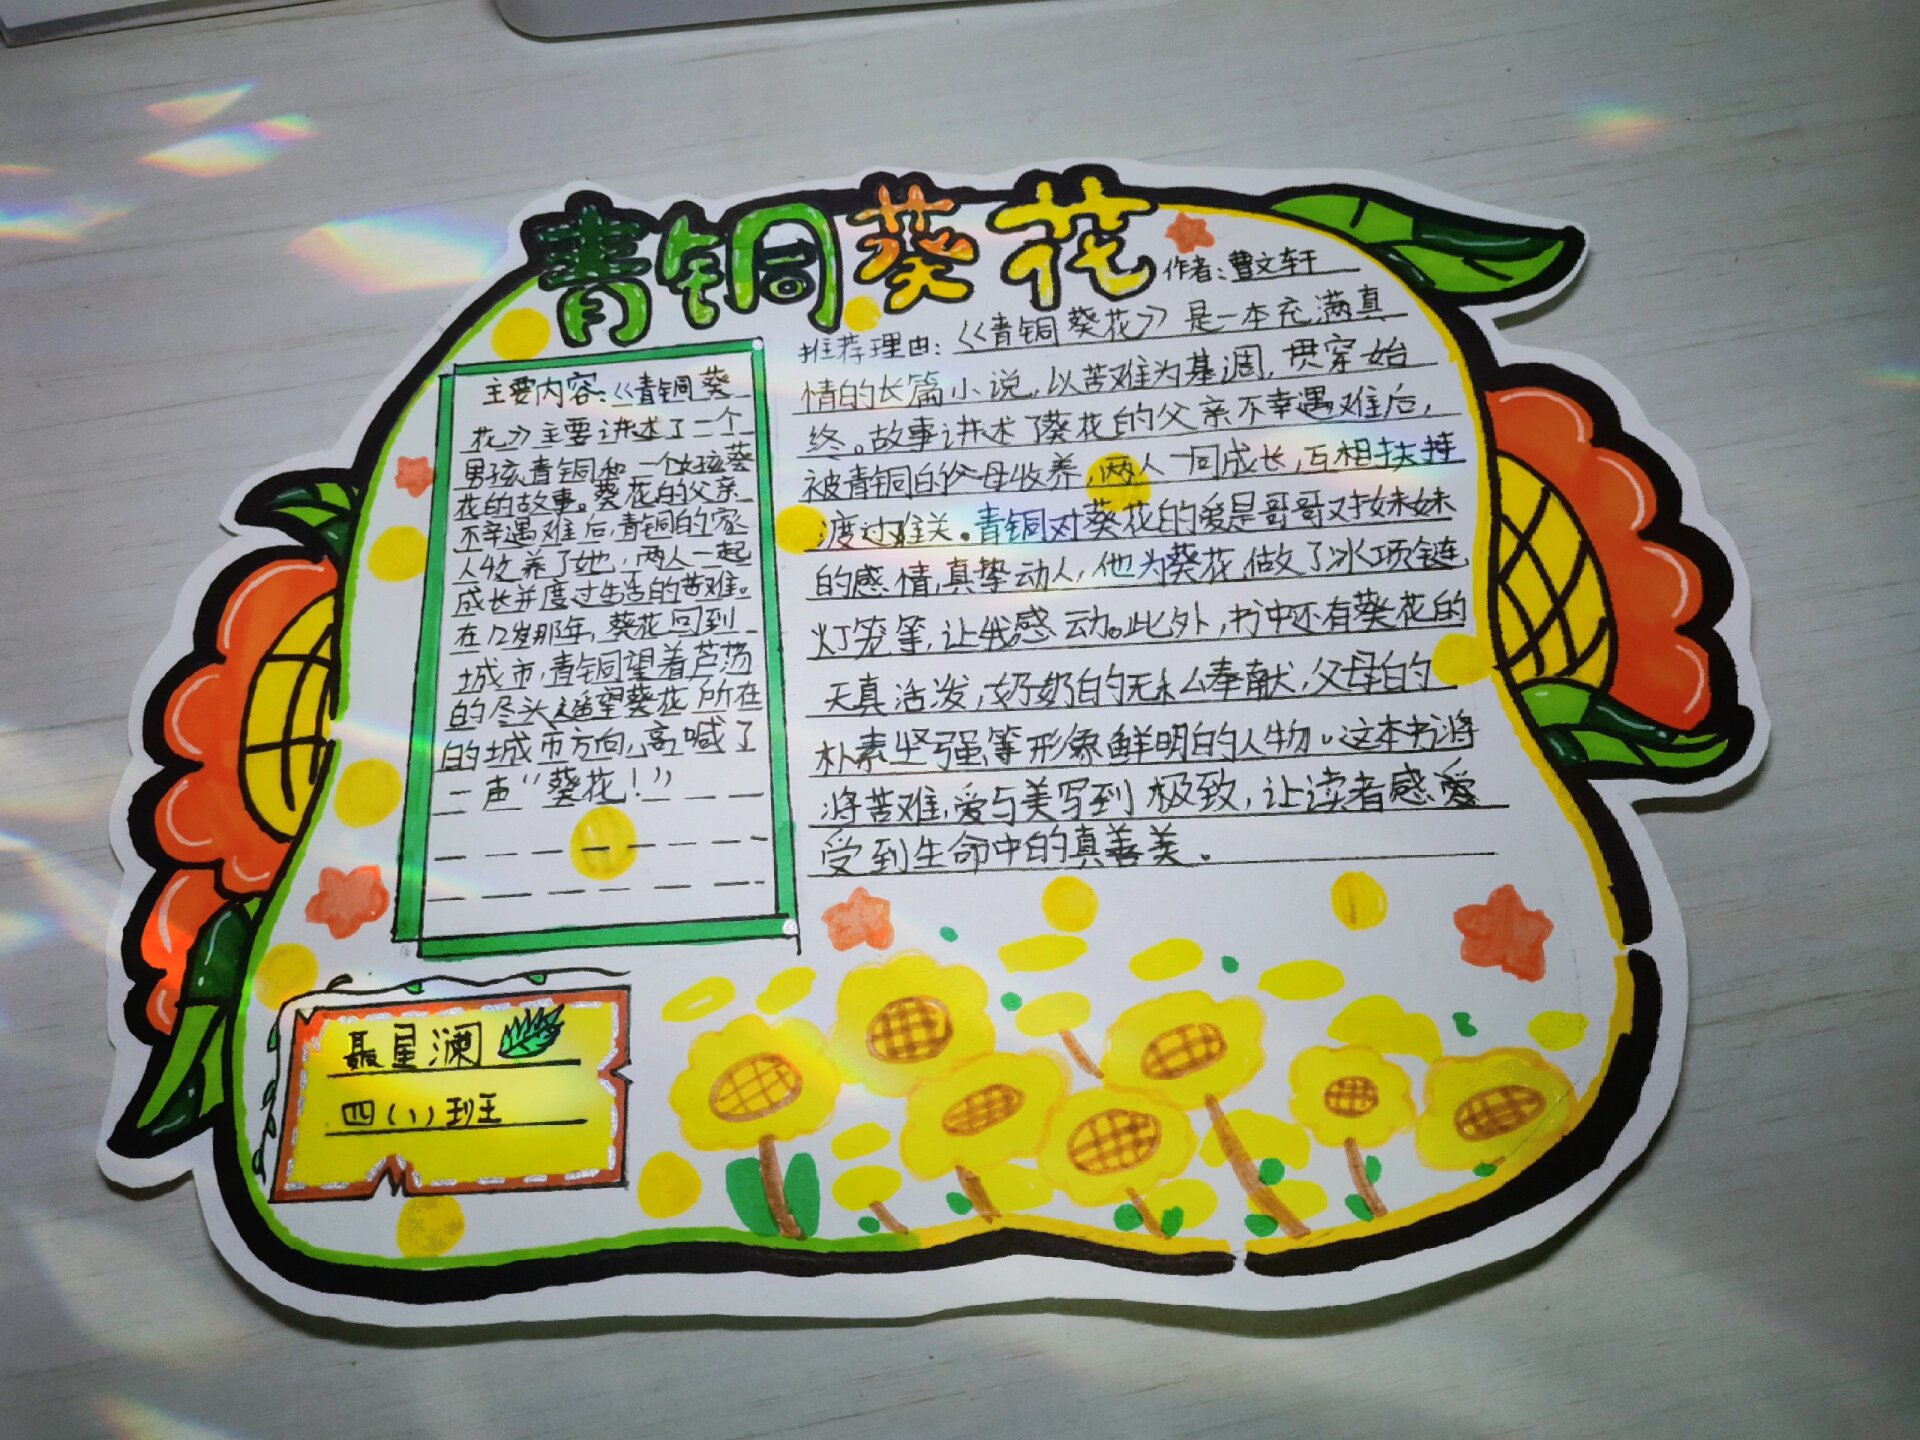 青铜葵花
作者：曹文轩
主要内容：《青铜葵
花》主要讲述了一个
男孩青铜和一个女孩葵
花的故事。葵花的父亲
不幸遇难后，青铜的家
人收养了她，两人一起
成长并度过生活的苦难。
在12岁那年，葵花回到
城市，青铜望着芦荡
的尽头遥望葵花所在
的城市方向，高喊了
一声“葵花！”
推荐理由：《青铜葵花》是一本充满真
情的长篇小说，以苦难为基调，贯穿始
终。故事讲述了葵花的父亲不幸遇难后，
被青铜的父母收养，两人一同成长，互相扶持
渡过难关。青铜对葵花的爱是哥哥对妹妹
的感情，真挚动人，他为葵花做了冰项链
灯笼等，让我感动。此外，书中还有葵花的
天真活泼，奶奶的无私奉献，父母的
朴素坚强等形象鲜明的人物。这本书将
将苦难，爱与美写到极致，让读者感爱
受到生命中的真善美。
聂星澜
四（1）班